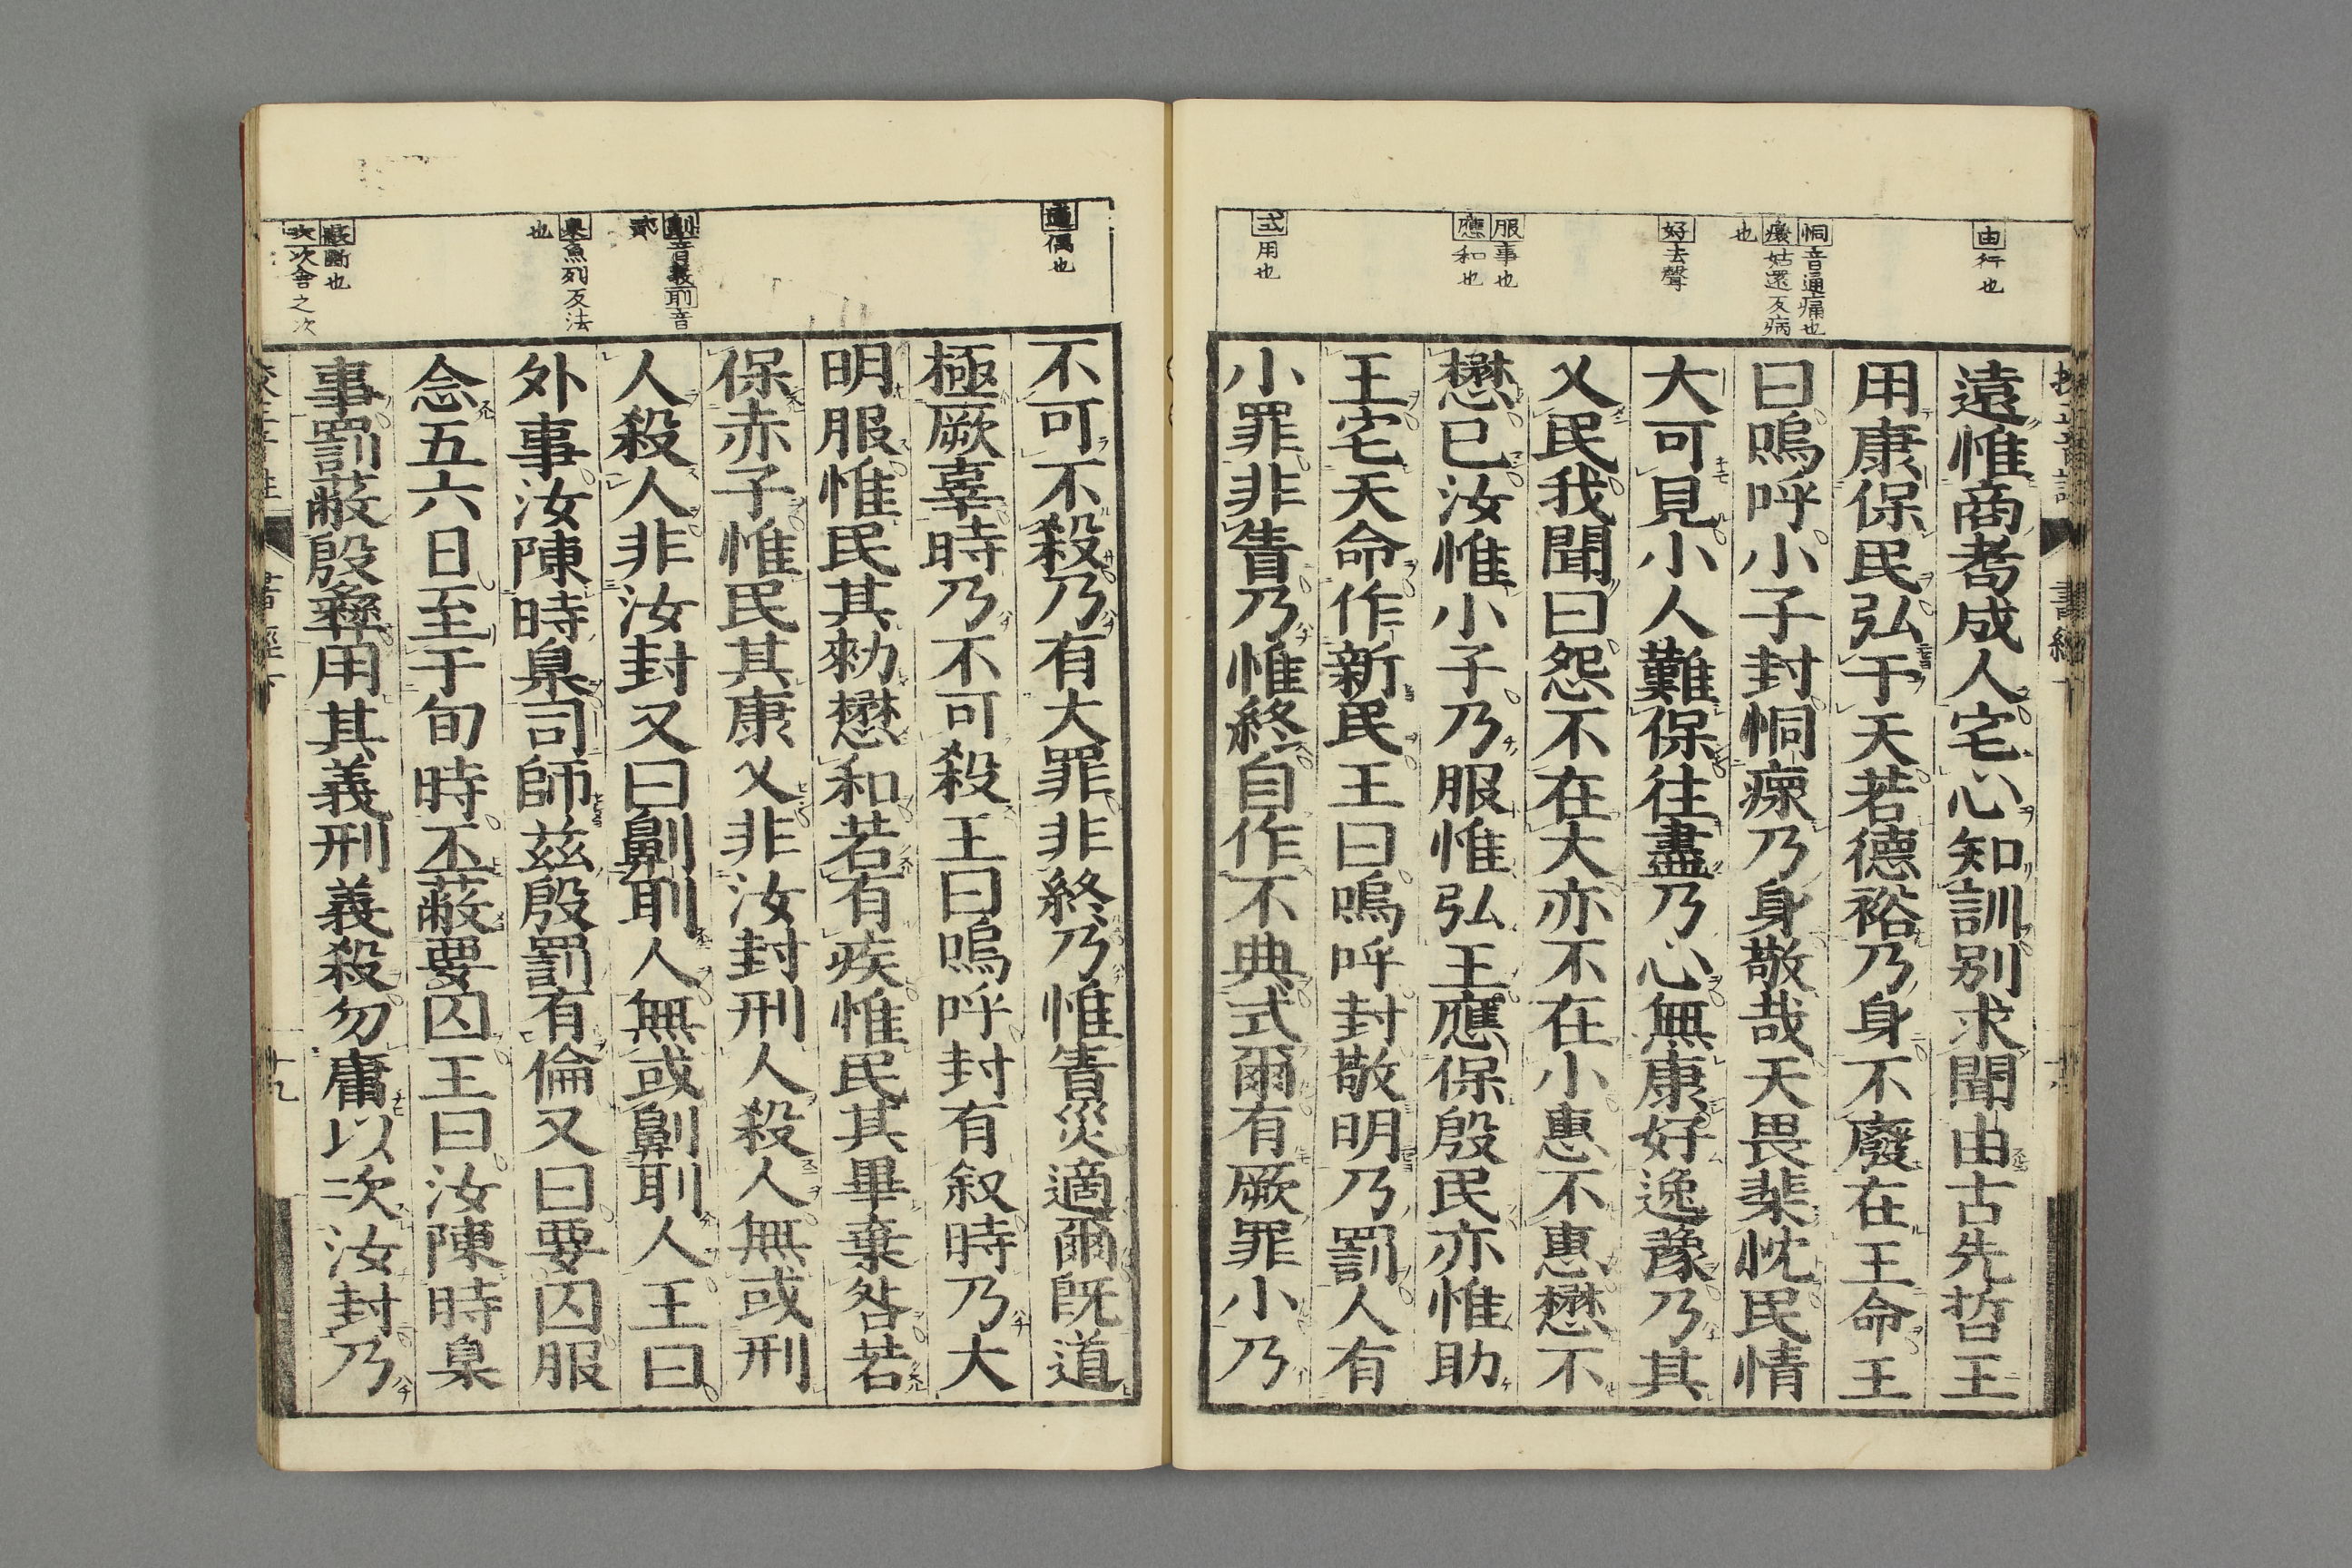 由行也
恫音通痛也
瘝姑還反病
也
好去聲
服事也
應和也
式用也
遠惟商耇成人宅心知訓別求聞由古先哲王
用康保民弘于天若德裕乃身不廢在王命王
曰嗚呼小子封恫瘝乃身敬哉天畏棐忱民情
大可見小人難保往盡乃心無康好逸豫乃其
乂民我聞曰怨不在大亦不在小惠不惠懋不
懋已汝惟小子乃服惟弘王應保殷民亦惟助
王宅天命作新民王曰嗚呼封敬明乃罰人有
小罪非眚乃惟終自作不典式爾有厥罪小乃
適偶也
劓音義刵音
貳
臬魚列反法
也
蔽斷也
次次舍之次
不可不殺乃有大罪非終乃惟眚災適爾既道
極厥辜時乃不可殺王曰嗚呼封有叙時乃大
明服惟民其勑懋和若有疾惟民其畢棄咎若
保赤子惟民其康乂非汝封刑人殺人無或刑
人殺人非汝封又曰劓刵人無或劓刵人王曰
外事汝陳時臬司師茲殷罰有倫又曰要囚服
念五六日至于旬時丕蔽要囚王曰汝陳時臬
事罰蔽殷彝用其義刑義殺勿庸以次汝封乃